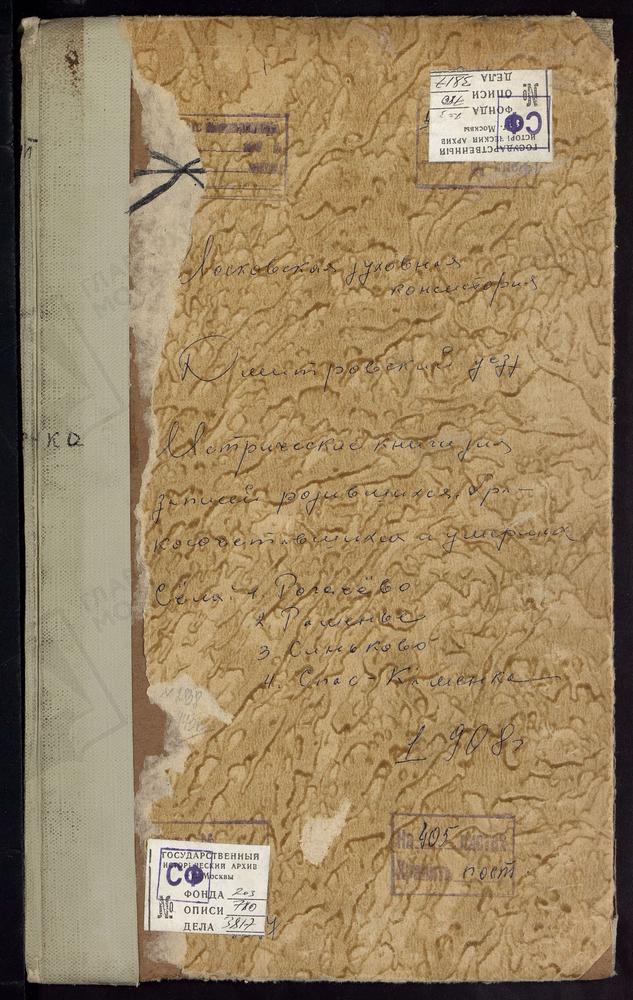 ГОСУДАРСТВЕННЫЙ
ИСТОРИЧЕСКИЙ АРХИВ
г. Москвы
СФ
ФОНДА 203
№ ОПИСИ 780
ДЕЛА 3817
Московская духовная
консистория
Дмитровский уезд
Метрические книги для
записей родившихся, бра-
косочетавшихся и умерших
Села: 1. Рогачёво
2 Раменье
3 Синьково
4. Спас-Каменка
1908г
На 405 листах
Хранить пост.
ГОСУДАРСТВЕННЫЙ
ИСТОРИЧЕСКИЙ АРХИВ
г. Москвы
СФ
ФОНДА 203
№ ОПИСИ 780
ДЕЛА 3817